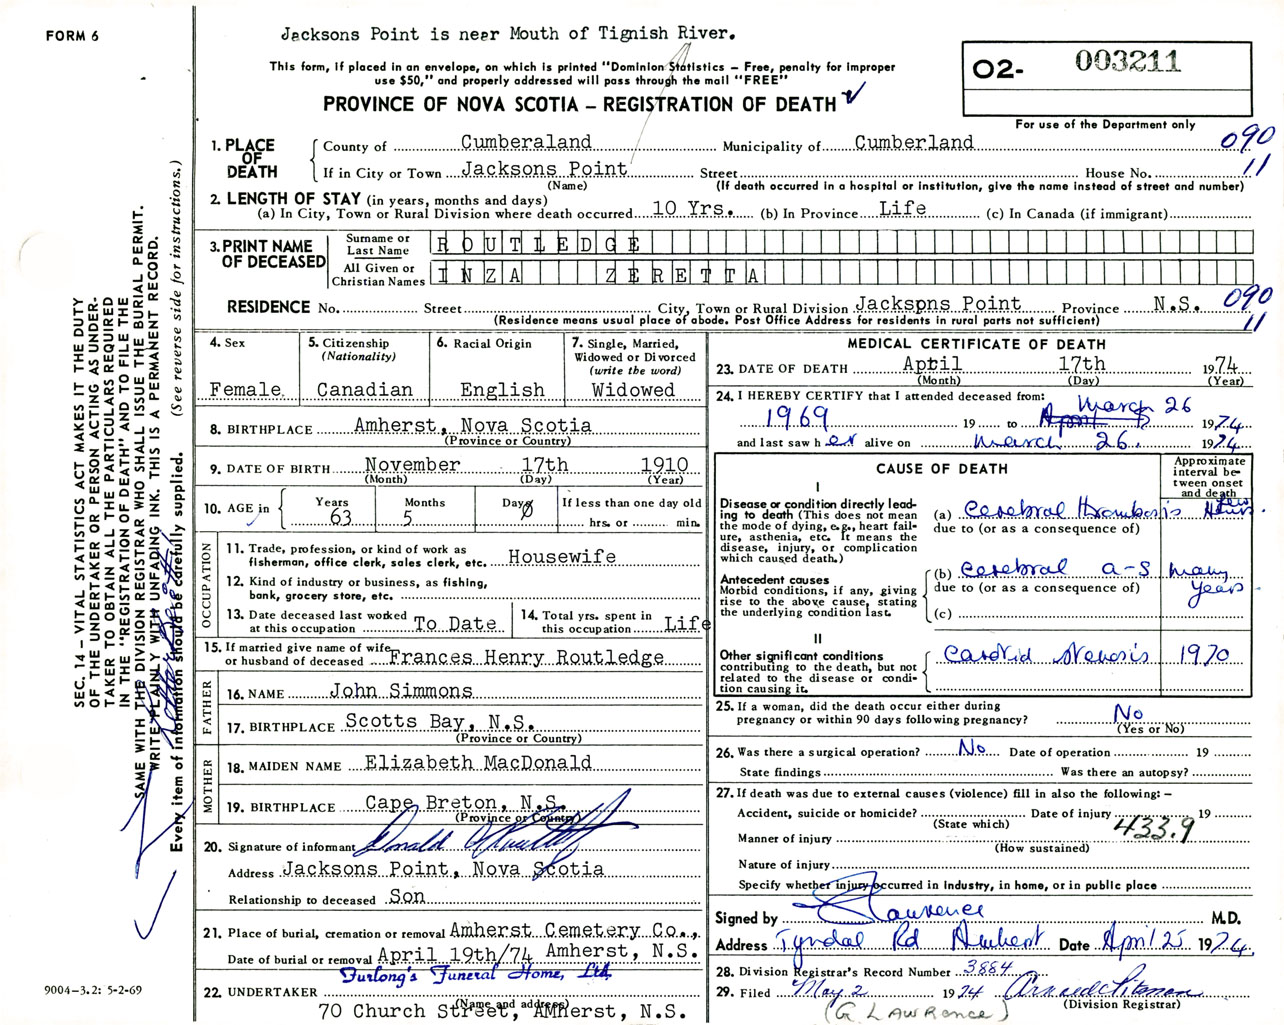 FORM 6
Jacksons Point is near Mouth of Tignish River.
This form, if placed in an envelope, on which is printed "Dominion Statistics – Free, penalty for improper
use $50," and properly addressed will pass through the mail "FREE"
PROVINCE OF NOVA SCOTIA – REGISTRATION OF DEATH
02- 003211
For use of the Department only
1. PLACE OF DEATH
County of Cumberaland Municipality of Cumberland 090
If in City or Town Jacksons Point Street House No. 11
(Name) (If death occurred in a hospital or institution, give the name instead of street and number)
2. LENGTH OF STAY (in years, months and days)
(a) In City, Town or Rural Division where death occurred 10 Yrs. (b) In Province Life (c) In Canada (if immigrant)
3. PRINT NAME OF DECEASED
Surname or Last Name ROUTLEDGE
All Given or Christian Names INZA ZERETTA
RESIDENCE No. Street City, Town or Rural Division Jackspns Point Province N.S. 090
(Residence means usual place of abode. Post Office Address for residents in rural parts not sufficient) 11
4. Sex
Female
5. Citizenship
(Nationality)
Canadian
6. Racial Origin
English
7. Single, Married,
Widowed or Divorced
(write the word)
Widowed
8. BIRTHPLACE Amherst, Nova Scotia
(Province or Country)
9. DATE OF BIRTH November 17th 1910
(Month) (Day) (Year)
10. AGE in
Years Months Days If less than one day old
63 5 0 hrs. or min.
OCCUPATION
11. Trade, profession, or kind of work as
fisherman, office clerk, sales clerk, etc. Housewife
12. Kind of industry or business, as fishing,
bank, grocery store, etc.
13. Date deceased last worked
at this occupation To Date
14. Total yrs. spent in
this occupation Life
15. If married give name of wife
or husband of deceased Frances Henry Routledge
FATHER
16. NAME John Simmons
17. BIRTHPLACE Scotts Bay, N.S.
(Province or Country)
MOTHER
18. MAIDEN NAME Elizabeth MacDonald
19. BIRTHPLACE Cape Breton, N.S.
(Province or Country)
20. Signature of informant Donald
Address Jacksons Point, Nova Scotia
Relationship to deceased Son
21. Place of burial, cremation or removal Amherst Cemetery Co.,
Date of burial or removal April 19th/74 Amherst, N.S.
Furlong's Funeral Home, Ltd.
22. UNDERTAKER
(Name and address)
70 Church Street, AMherst, N.S.
MEDICAL CERTIFICATE OF DEATH
23. DATE OF DEATH April 17th 1974
(Month) (Day) (Year)
24. I HEREBY CERTIFY that I attended deceased from:
1969 19 to April March 26 1974
and last saw her alive on March 26. 1974
CAUSE OF DEATH
Approximate
interval be-
tween onset
and death
I
Disease or condition directly lead-
ing to death (This does not
mean the mode of dying, e.g., heart fail-
ure, asthenia, etc. It means the
disease, injury, or complication
which caused death.)
(a) Cerebral thrombosis few Hours.
due to (or as a consequence of)
Antecedent causes
Morbid conditions, if any, giving
rise to the above cause, stating
the underlying condition last.
(b) Cerebral a-s many years
due to (or as a consequence of)
(c)
II
Other significant conditions
contributing to the death, but not
related to the disease or condi-
tion causing it.
Carotid stenosis 1970
25. If a woman, did the death occur either during
pregnancy or within 90 days following pregnancy? No
(Yes or No)
26. Was there a surgical operation? No Date of operation 19
State findings Was there an autopsy?
27. If death was due to external causes (violence) fill in also the following: –
Accident, suicide or homicide? Date of injury 19
(State which)
433.9
Manner of injury
(How sustained)
Nature of injury
Specify whether injury occurred in Industry, in home, or in public place
Signed by Lawrence M.D.
Address Tyndal Rd Amherst Date April 25 1974.
28. Division Registrar's Record Number 3884
29. Filed May 2 1974
(Division Registrar)
(G LAWRence)
SEC. 14 – VITAL STATISTICS ACT MAKES IT THE DUTY
OF THE UNDERTAKER OR PERSON ACTING AS UNDER-
TAKER TO OBTAIN ALL THE PARTICULARS REQUIRED
IN THE "REGISTRATION OF DEATH" AND TO FILE THE
SAME WITH THE DIVISION REGISTRAR WHO SHALL ISSUE THE BURIAL PERMIT.
WRITE PLAINLY WITH UNFADING INK. THIS IS A PERMANENT RECORD.
Every item of information should be carefully supplied. (See reverse side for instructions.)
9004–3.2: 5-2-69